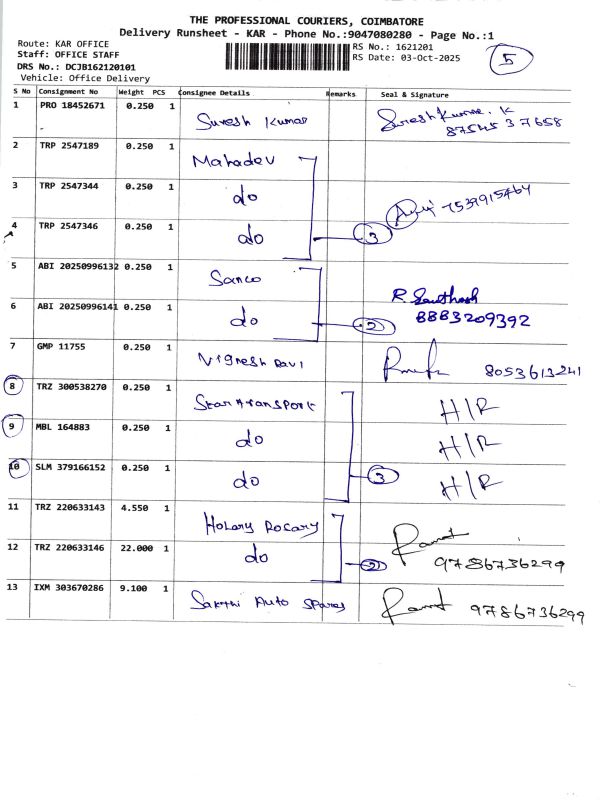 THE PROFESSIONAL COURIERS, COIMBATORE
Delivery Runsheet - KAR - Phone No.:9047080280 - Page No.:1
Route: KAR OFFICE
Staff: OFFICE STAFF
DRS No.: DCJB162120101
Vehicle: Office Delivery
RS No.: 1621201
RS Date: 03-Oct-2025
5
S No Consignment No Weight PCS Consignee Details Remarks Seal & Signature
1 PRO 18452671 0.250 1 Suresh Kumar Suresh Kumar. K
87545 37658
2 TRP 2547189 0.250 1 Mahadev
3 TRP 2547344 0.250 1 do 7539915464
4 TRP 2547346 0.250 1 do 3
5 ABI 20250996132 0.250 1 Sanco R. Santhosh
6 ABI 20250996141 0.250 1 do 2 8883209392
7 GMP 11755 0.250 1 Vignesh Ravi 8053613241
8 TRZ 300538270 0.250 1 Star transport H/R
9 MBL 164883 0.250 1 do H/R
10 SLM 379166152 0.250 1 do 3 H/R
11 TRZ 220633143 4.550 1 Holary Rosary
12 TRZ 220633146 22.000 1 do 2 9786736299
13 IXM 303670286 9.100 1 Sakthi Auto Spares 9786736299